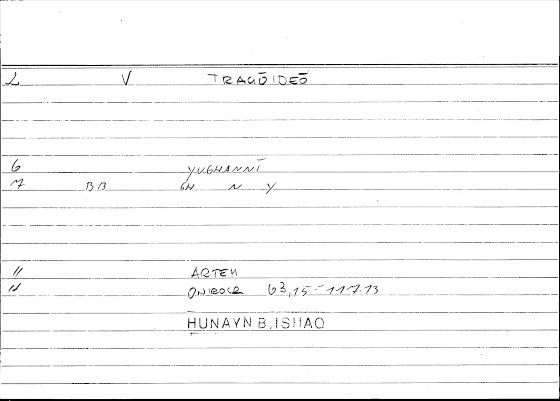 2 V TRAGŌIDEŌ
6 YUGHANNĪ
7 BB GH N Y
11 ARTEM
12 ONIROCR 63,15-117.13
HUNAYN B.ISHAQ